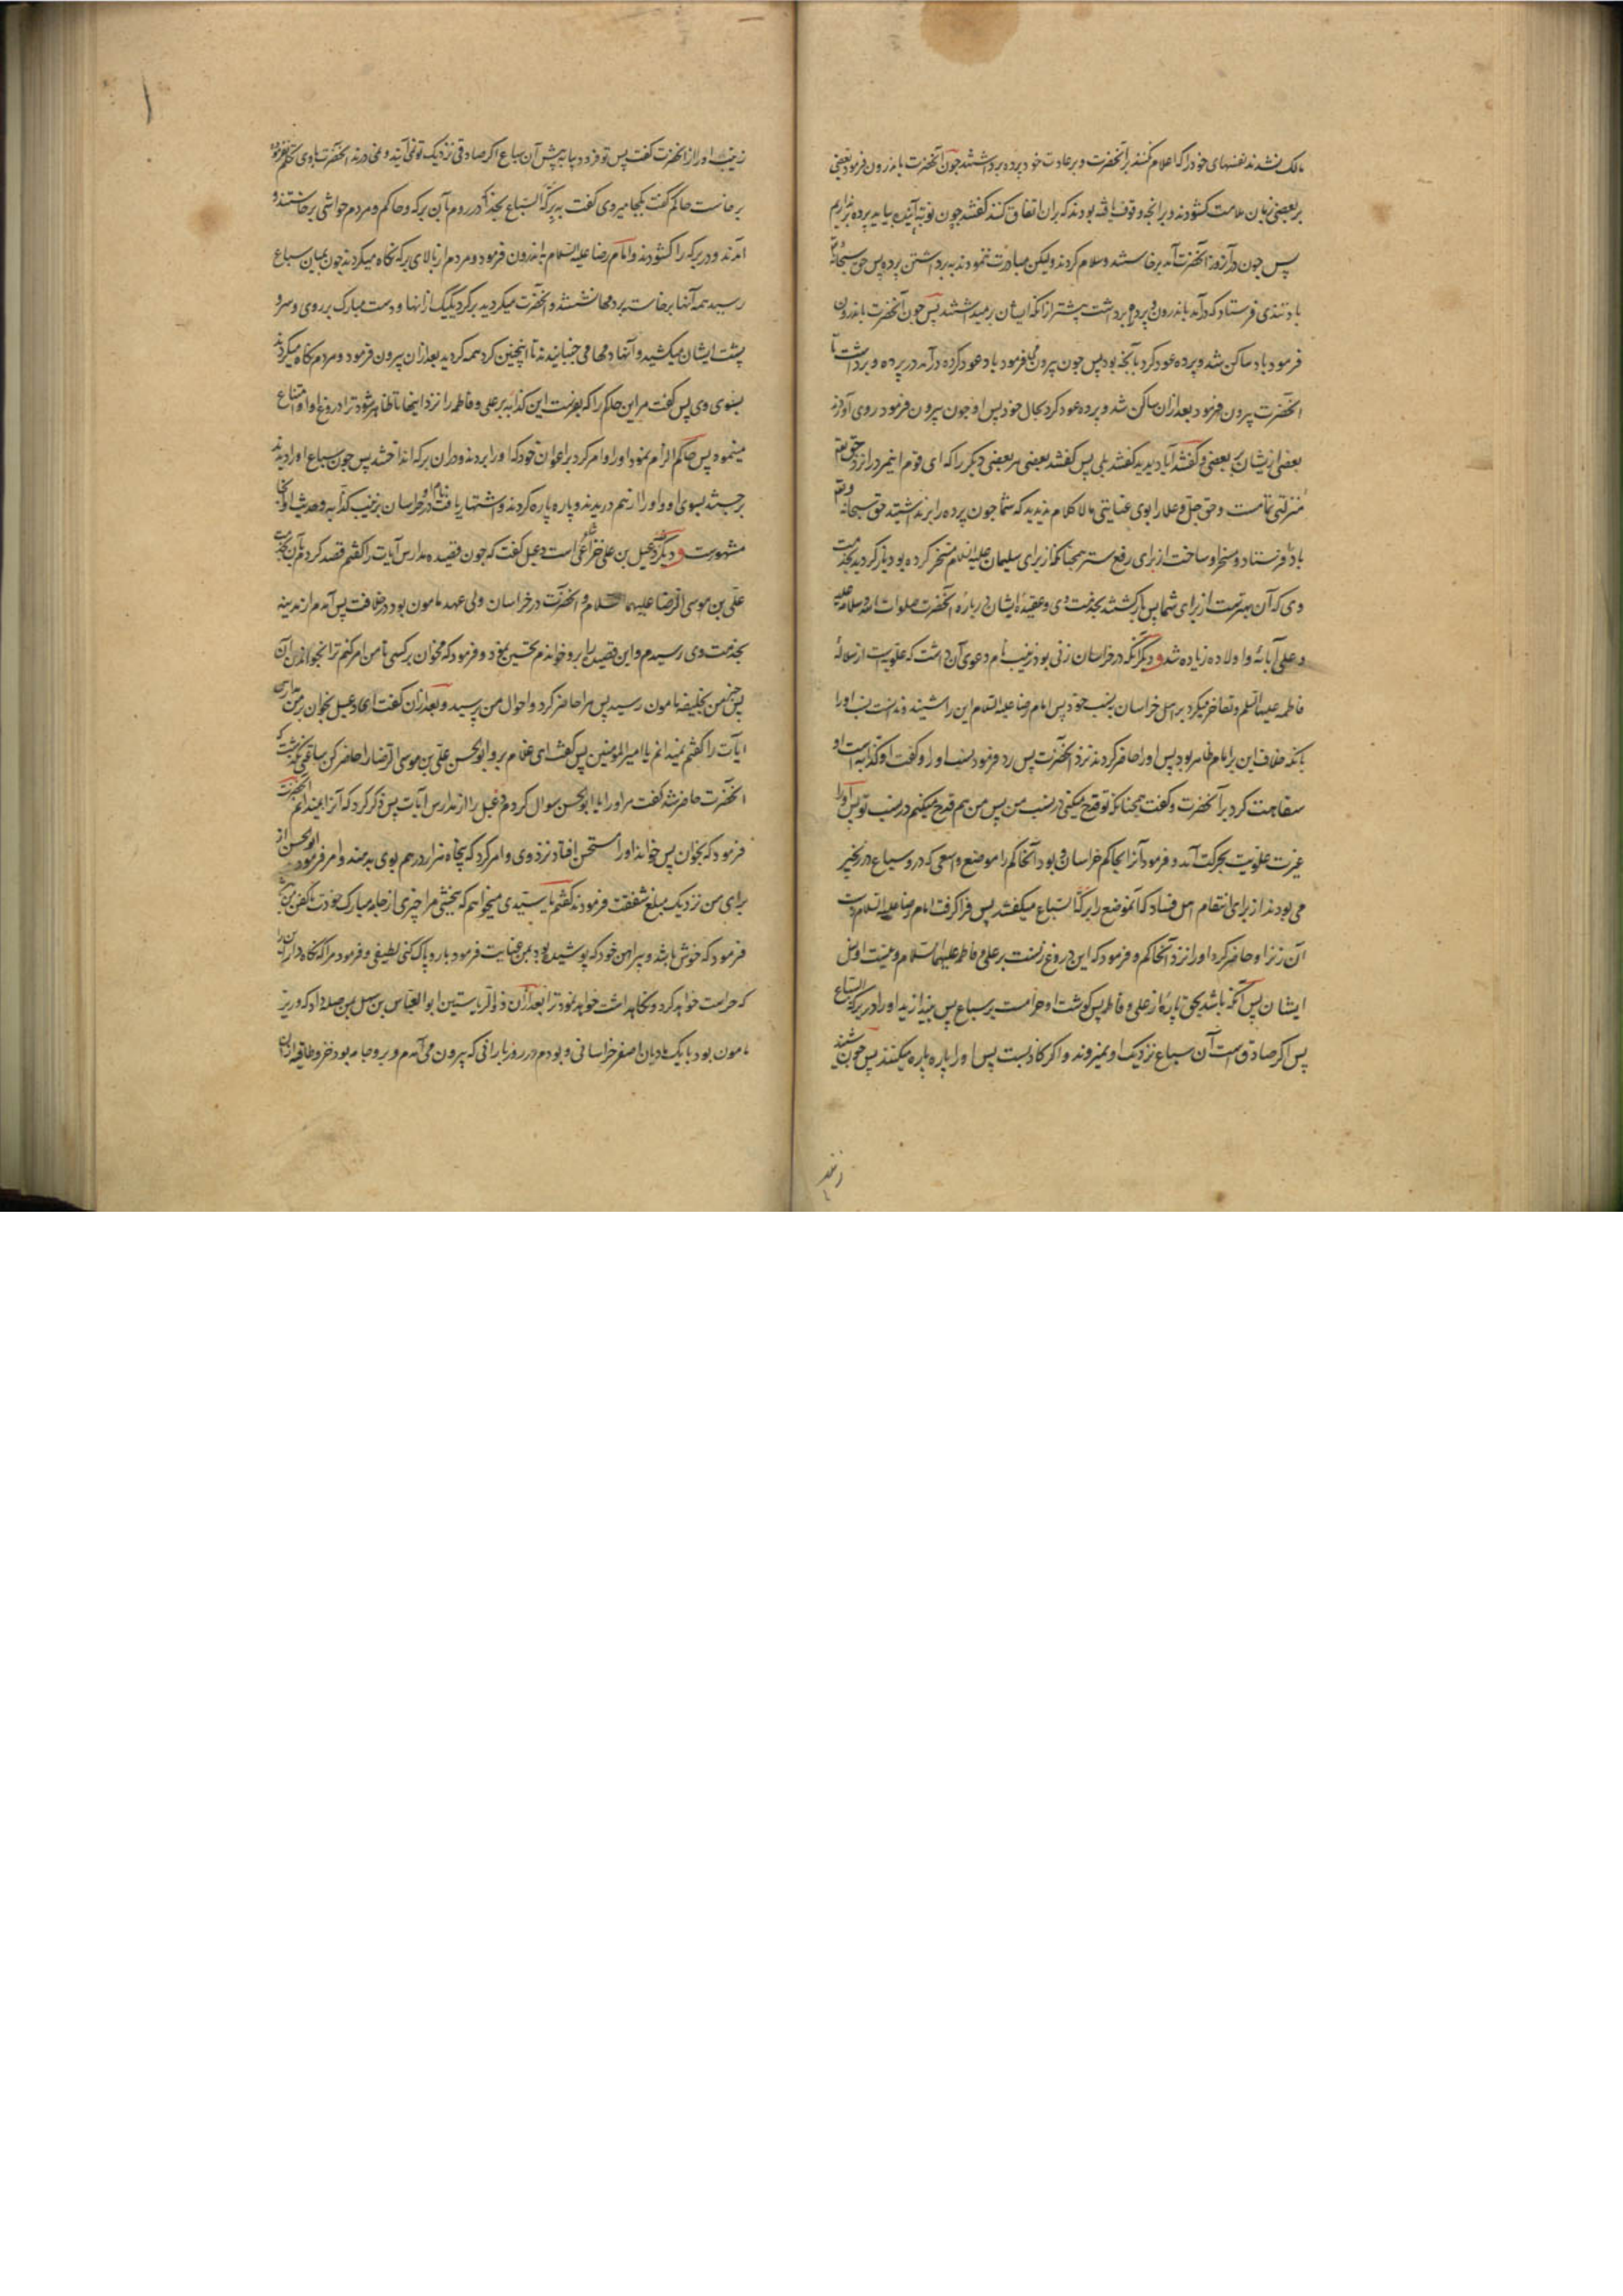 مالک نشدند نفسهای خود را که اعلام کنند بر آنحضرت و بر عادت خود پرده برداشتند چون آنحضرت باندرون فرمود بعضی
بر بعضی زبان ملامت کشودند و بر انچه وقوف یافته بودند که بران اتفاق کنند کفتند چون نوبت آینده بیاید پرده برنداریم
پس چون در آن روز آنحضرت آمد برخاستند و سلام کردند ولیکن مبادرت ننمودند به برداشتن پرده پس حق سبحانه
بادتندی فرستاد که درآمد باندرون پرده و برداشت پیشتر از آنکه ایشان برمیداشتند پس چون آنحضرت باندرون
فرمود باد ساکن شد و پرده عود کرد بآنچه بود پس چون بیرون می فرمود باد عود کرده درآمد در پرده و برداشت تا
آنحضرت بیرون فرمود بعد ازان ساکن شد و پرده عود کرد بحال خود پس او چون بیرون فرمود روی آوردند
بعضی از یشان بر بعضی و کفتند آیا دیدید کفتند بلی پس کفتند بعضی مر بعضی دیکر را که ای قوم این مرد را نزد حق تعالی
منزلتی تمامست و حق جل و علا را بوی عنایتی مالا کلام ندیدید که شما چون پرده را برنداشتید حق سبحانه و تعالی
باد را فرستاد و مسخر او ساخت از برای رفع ستر همچنانکه از برای سلیمان علیه السلام مسخر کرده بود باز کردید بخدمت
وی که آن بهترست از برای شما پس بازکشتند بخدمت وی و عقیدهٔ ایشان در بارهٔ آنحضرت صلوات الله و سلامه علیه
و علی آبائه و اولاده زیاده شد و دیکر آنکه در خراسان زنی بود زینب نام دعوی آن داشت که علویه است از سلالهٔ
فاطمه علیها السلم و تفاخر میکرد بر اهل خراسان بنسب خود پس امام رضا علیه السلام این را شنیدند و ندانست نسب او را
بلکه خلاف این بر امام ظاهر بود پس او را حاضر کردند نزد آنحضرت پس رد فرمود نسب او را و کفت او کذابه است او
سفاهت کرد بر آنحضرت و کفت همچنانکه تو قدح میکنی در نسب من پس من هم قدح میکنم در نسب تو پس او را
غیرت علویت بحرکت آمد و فرمود آنرا بحاکم خراسان و بود آنحاکم را موضع واسعی که درو سباع در زنجیر
می بودند از برای انتقام اهل فساد که آنموضع را برکة السباع میکفتند پس فراکرفت امام رضا علیه السلام دست
آن زنرا و حاضر کرد او را نزد آنحاکم و فرمود که این دروغ زنست بر علی و فاطمه علیهما السلام و نیست او نسل
ایشان پس آنکه باشد بحق پارهٔ از علی و فاطمه پس کوشت او حرامست بر سباع پس بیندازید او را در برکة السباع
پس اکر صادق است آن سباع نزدیک او نمیروند و اکر کاذبست پس او را پاره پاره میکنند پس چون شنید
زینب او را از آنحضرت کفت پس تو فرود بیا به پیش آن سباع اکر صادقی نزدیک تو نمی آیند و نمی درند آنحضرت با وی تکلم نفرمود
برخاست حاکم کفت بکجا میروی کفت به برکة السباع بخدا که در روم بآن برکه و حاکم و مردم حواشی برخاستند و
آمدند و در برکه را کشودند و امام رضا علیه السلام باندرون فرمود و مردم از بالای برکه نکاه میکردند چون بمیان سباع
رسید همه آنها برخاسته بر دمها نشستند و آنحضرت میکردید بر کرد یک یک از آنها و دست مبارک بر روی و سر و
پشت ایشان میکشید و آنها دمها می جنبانیدند تا اینچنین کرد همه کردید بعد ازان بیرون فرمود و مردم نکاه میکردند
بسوی وی پس کفت مر این حاکم را که بفرست این کذابه بر علی و فاطمه را نزد اینها تا ظاهر شود ترا دروغ او او امتناع
مینمود پس حاکم الزام نمود او را و امر کرد بر اعوان خود که او را بردند و دران برکه انداختند پس چون سباع او را دیدند
برجستند بسوی او و او را از هم دریدند و پاره پاره کردند و اشتهار یافت نام او در خراسان بزینب کذابه و حدیث او آنجا
مشهورست و دیکر دعبل بن علی خزاعی است دعبل کفت که چون قصیده مدارس آیات را کفتم قصد کردم بآن بخدمت
علی بن موسی الرضا علیهما السلام و آنحضرت در خراسان ولی عهد مامون بود در خلافت پس آمدم از مدینه
بخدمت وی رسیدم و این قصیده را برو خواندم تحسین نمود و فرمود که مخوان بر کسی تا من امر کنم ترا بخواندن آن
پس خبر من بخلیفه مامون رسید پس مرا حاضر کرد و احوال من پرسید و بعد ازان کفت ای دعبل بخوان بر من مدارس
آیات را کفتم نمیدانم یا امیر المؤمنین پس کفت ای غلام برو ابو الحسن علی بن موسی الرضا را حاضر کن ساعتی نکذشت که
آنحضرت حاضر شد کفت مر او را یا ابو الحسن سوال کردم دعبل را از مدارس آیات پس ذکر کرد که آنرا نمیدانم آنحضرت
فرمود که بخوان پس خواندم او را مستحسن افتاد نزد وی و امر کرد که پنجاه هزار درهم بوی بدهند و امر فرمود ابو الحسن از
برای من نزدیک بمبلغ شفقت فرمودند کفتم یا سیدی میخواهم که بخشی مرا چیزی از جامه مبارک خودت تا کفن من باشد
فرمود که خوش باشد و پیراهن خود که پوشیده بود بمن عنایت فرمود با رو پاک کنی لطیفی و فرمود مرا که نکاه دار این را
که حراست خواهد کرد و نکاه داشت خواهد نمود ترا بعد ازان ذو الریاستین ابو العباس بن سهل بمن صله داد که وزیر
مامون بود با یک مادیان اصفر خراسانی و بودم در روز بارانی که بیرون می آمدم و برو جامه بود خز و طاقیه ازان
زینب